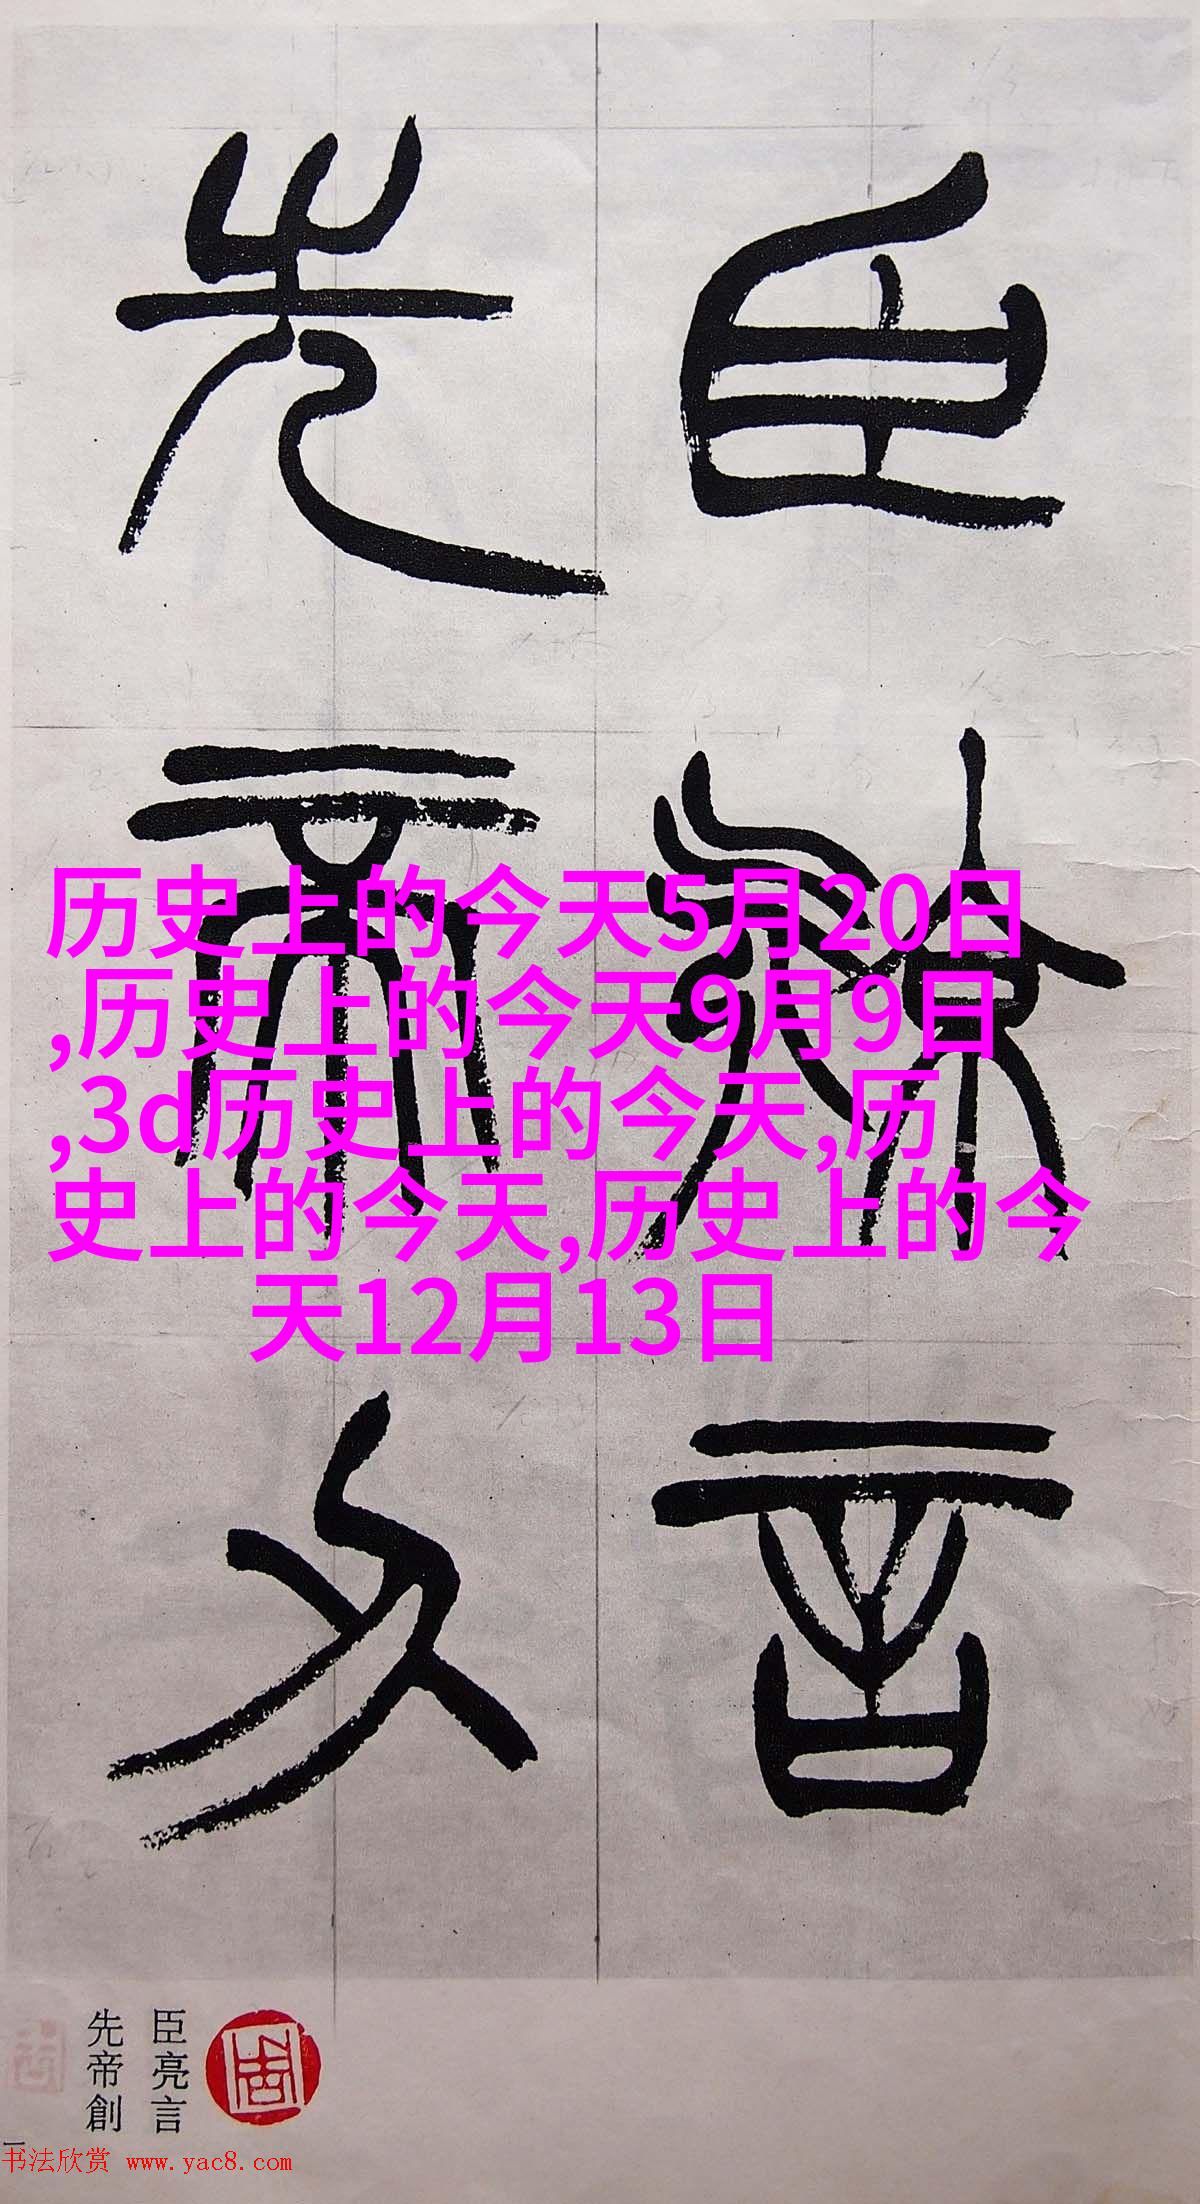 臣亮言
先帝创
历史上的今天5月20日
,历史上的今天9月9日
,3d历史上的今天,历
史上的今天,历史上的今
天12月13日
臣亮言
先帝創
一
书法欣赏 www.yac8.com